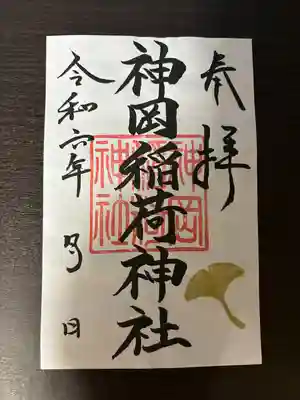 奉拝
神岡稲荷神社
令和六年 月 日
神岡稲荷神社